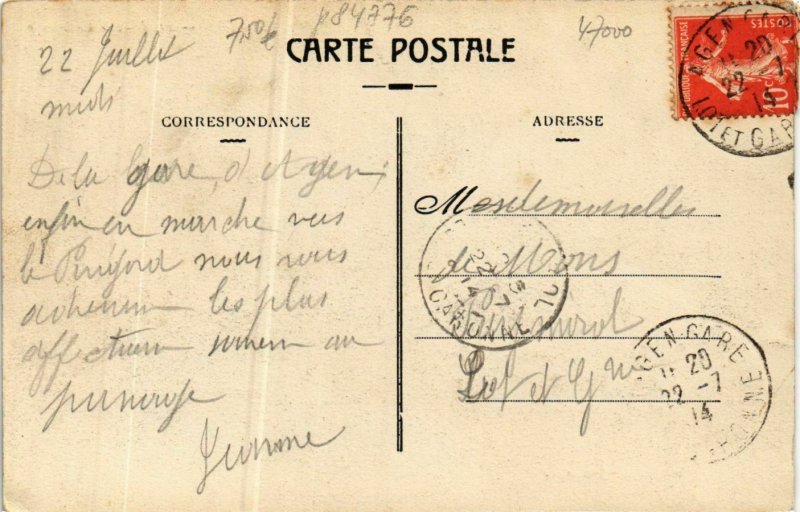 7,50€
p84776
47000
22 Juillet
midi
CARTE POSTALE
CORRESPONDANCE
ADRESSE
De la Gare d'Agen,
enfin en marche vers
le Périgord nous vous
les plus
affectueux au
passage
Jeanne
Mesdemoiselles
de Mons
Puymirol
Lot et Gne
POSTES
10c
AGEN GARE
11 20
22 -7
14
LOT ET GAR
22 -7
14
GARONNE
AGEN-GARE
11 20
22 -7
14
GARONNE